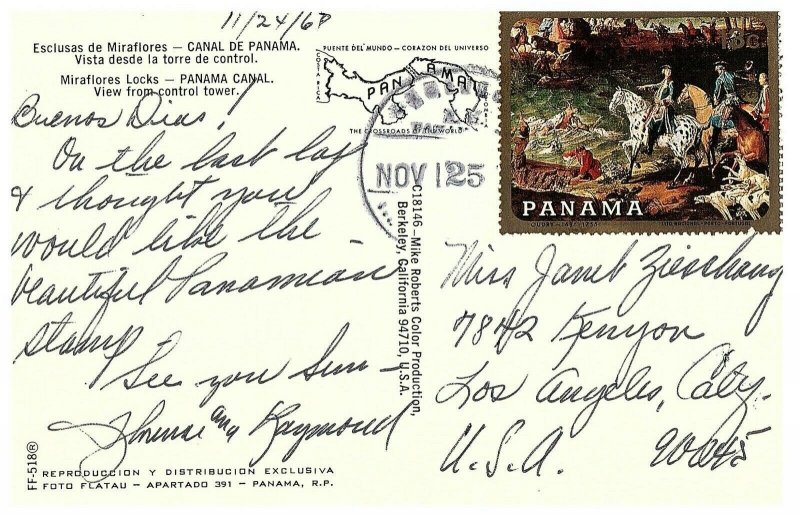 11/24/68
Esclusas de Miraflores — CANAL DE PANAMA.
Vista desde la torre de control.
Miraflores Locks — PANAMA CANAL.
View from control tower.
Buenos Dias!
On the last lap
& thought you
would like the
beautiful Panamian
stamp.
See you Sun –
and Raymond
FF-518®
REPRODUCCION Y DISTRIBUCION EXCLUSIVA
FOTO FLATAU — APARTADO 391 — PANAMA, R.P.
PUENTE DEL MUNDO — CORAZON DEL UNIVERSO
COSTA RICA
PANAMA
COLOMBIA
THE CROSSROADS OF THE WORLD
NOV 25
C18146—Mike Roberts Color Production,
Berkeley, California 94710, U.S.A.
PANAMA
OUDRY
Miss Janet Zieschang
7842 Kenyon
Los Angeles, Caly.
U.S.A. 90045